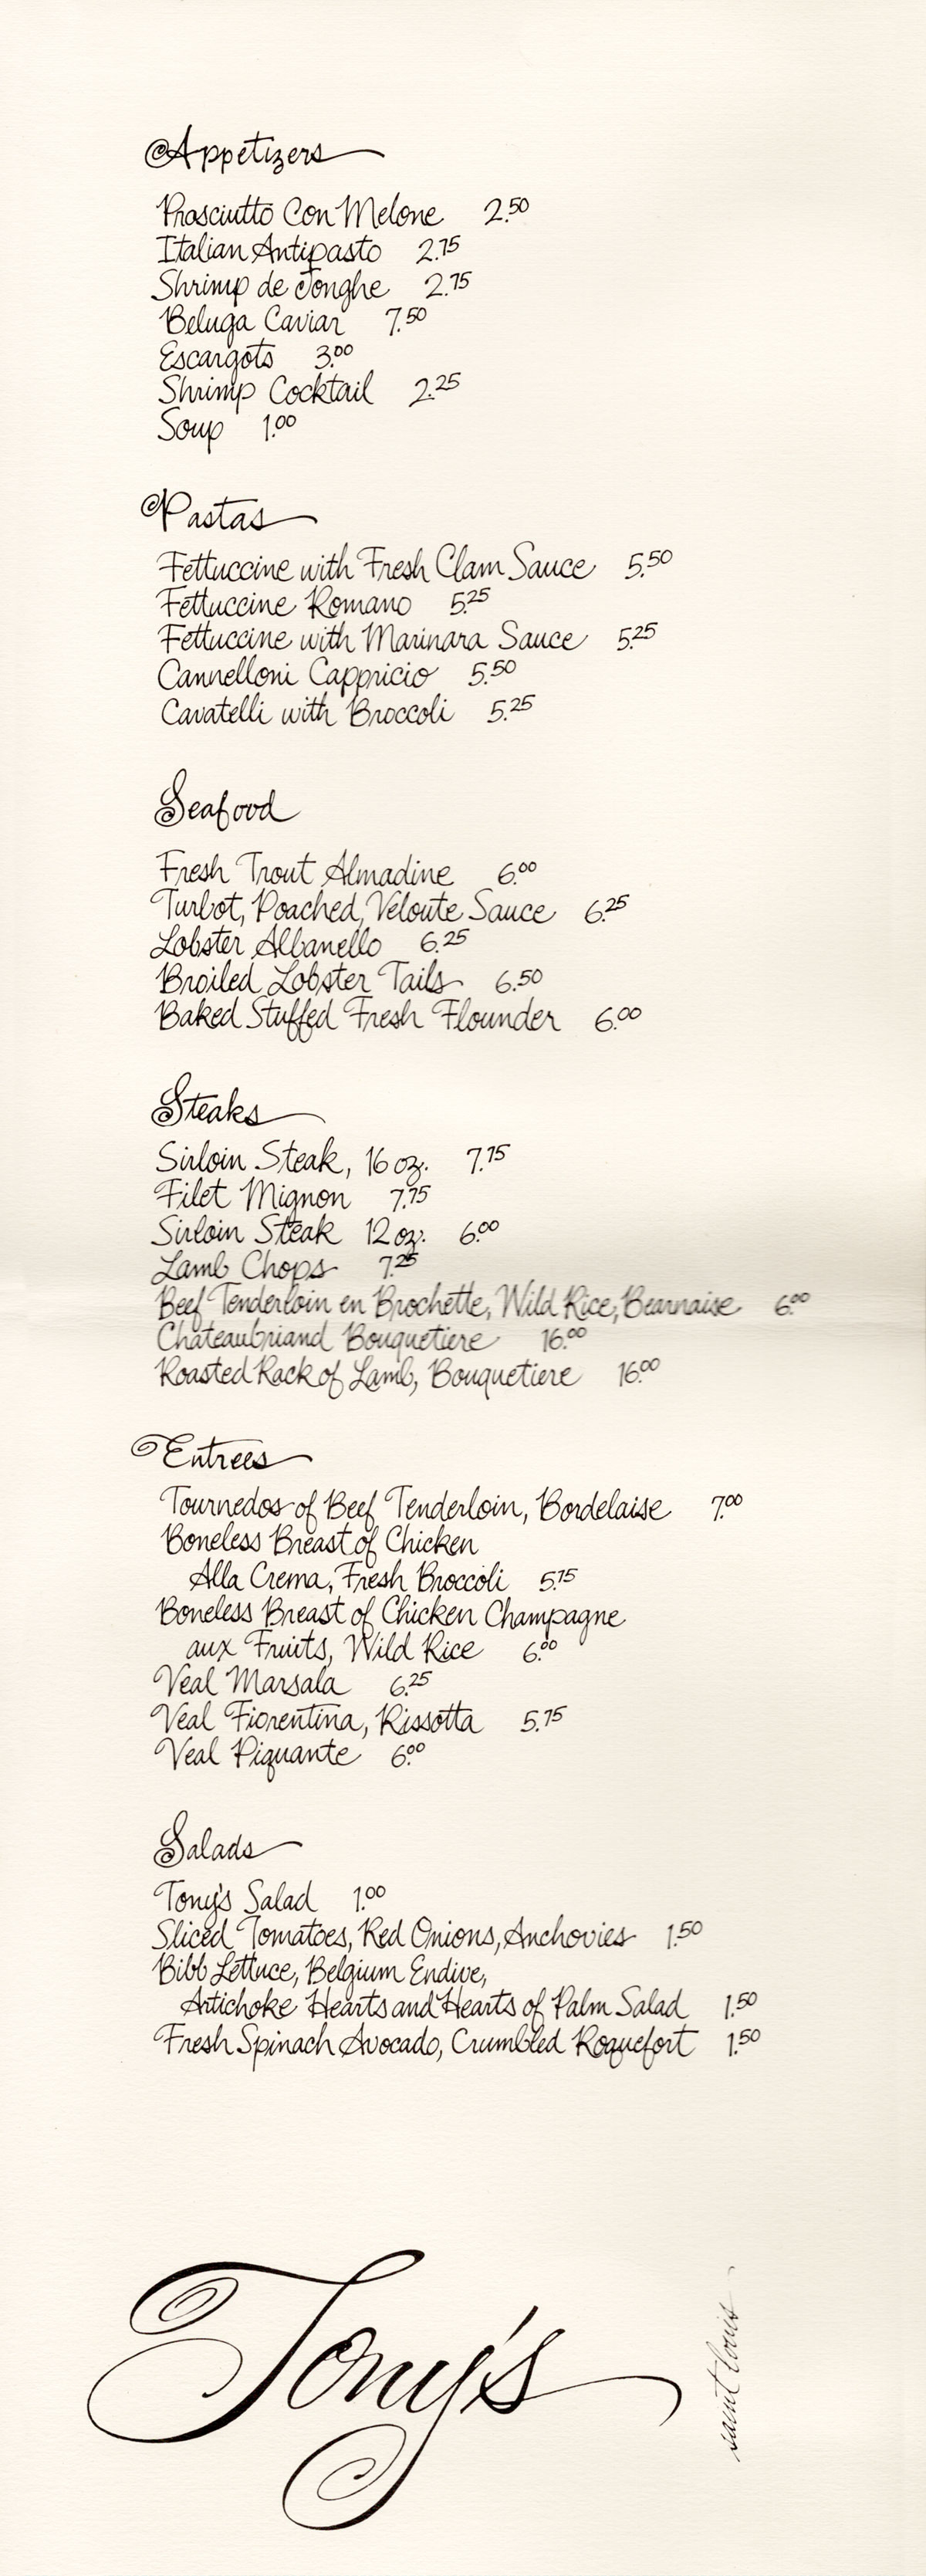 Appetizers
Prosciutto Con Melone 2.50
Italian Antipasto 2.75
Shrimp de Jonghe 2.75
Beluga Caviar 7.50
Escargots 3.00
Shrimp Cocktail 2.25
Soup 1.00
Pastas
Fettuccine with Fresh Clam Sauce 5.50
Fettuccine Romano 5.25
Fettuccine with Marinara Sauce 5.25
Cannelloni Cappricio 5.50
Cavatelli with Broccoli 5.25
Seafood
Fresh Trout Almadine 6.00
Turbot, Poached, Veloute Sauce 6.25
Lobster Albanello 6.25
Broiled Lobster Tails 6.50
Baked Stuffed Fresh Flounder 6.00
Steaks
Sirloin Steak, 16 oz. 7.75
Filet Mignon 7.75
Sirloin Steak 12 oz. 6.00
Lamb Chops 7.25
Beef Tenderloin en Brochette, Wild Rice, Bearnaise 6.00
Chateaubriand Bouquetiere 16.00
Roasted Rack of Lamb, Bouquetiere 16.00
Entrees
Tournedos of Beef Tenderloin, Bordelaise 7.00
Boneless Breast of Chicken
Alla Crema, Fresh Broccoli 5.75
Boneless Breast of Chicken Champagne
aux Fruits, Wild Rice 6.00
Veal Marsala 6.25
Veal Fiorentina, Rissotta 5.75
Veal Piquante 6.00
Salads
Tony's Salad 1.00
Sliced Tomatoes, Red Onions, Anchovies 1.50
Bibb Lettuce, Belgium Endive,
Artichoke Hearts and Hearts of Palm Salad 1.50
Fresh Spinach Avocado, Crumbled Roquefort 1.50
Tony's
saint louis